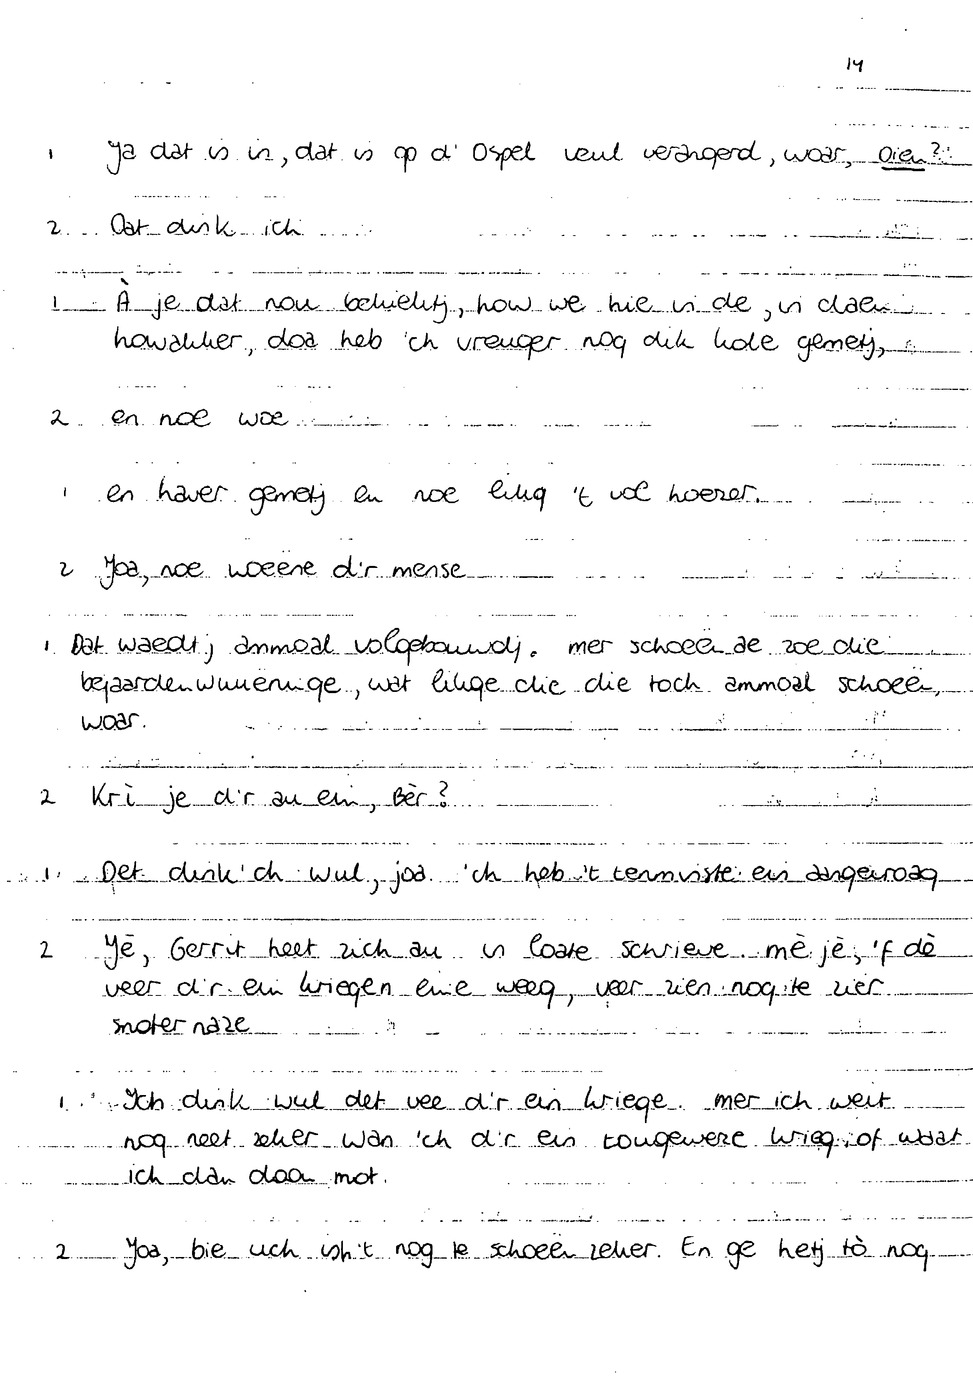 14
1 Ja dat is in, dat is op d' Ospel veul verangerd, woar, Dien?
2 Dat dink ich
1 À je dat nou bekiektj, how we hie in de, in daen
howakker, doa heb 'ch vreuger nog dik kole gemetj,
2 en noe woe
1 en haver gemetj en noe likg 't vol hoezer.
2 Joa, noe woeëne d'r mense
1 Dat waedtj ammoal volgebouwdj. mer schoeën ae zoe die
bejaardenwunëninge, wat likge die die toch ammoal schoeën,
woar.
2 Kri je d'r au ein, Bèr?
1 Det dink 'ch wul, joa. 'ch heb 't tenminste ein aangevroag
2 Jè, Gerrit heet zich au in loate schrieve. mè jè, 'f dè
veer d'r ein kriegen enie weeg, veer zien nog te zier
snoternaze
1 Ich dink wul det vee d'r ein kriege. mer ich weit
nog neet zeker wan 'ch d'r ein tougeweze krieg, of waat
ich dan doon mot.
2 Joa, bie uch ish 't nog te schoeën zeker. En ge hetj tò nog